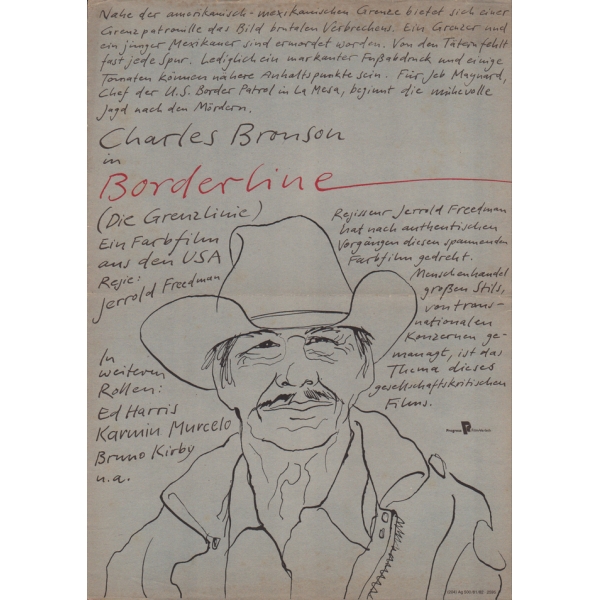 Nahe der amerikanisch-mexikanischen Grenze bietet sich einer
Grenzpatrouille das Bild brutalen Verbrechens. Ein Grenzer und
ein junger Mexikaner sind ermordet worden. Von den Tätern fehlt
fast jede Spur. Lediglich ein markanter Fußabdruck und einige
Tomaten können nähere Anhaltspunkte sein. Für Jeb Maynard,
Chef der U.S. Border Patrol in La Mesa, beginnt die mühevolle
Jagd nach den Mördern.
Charles Bronson
in
Borderline
(Die Grenzlinie)
Ein Farbfilm
aus den USA
Regie:
Jerrold Freedman
Regisseur Jerrold Freedman
hat nach authentischen
Vorgängen diesen spannenden
Farbfilm gedreht.
Menschenhandel
großen Stils,
von trans-
nationalen
Konzernen ge-
managt, ist das
Thema dieses
gesellschaftskritischen
Films.
In
weiteren
Rollen:
Ed Harris
Karmin Murcelo
Bruno Kirby
u.a.
Progress